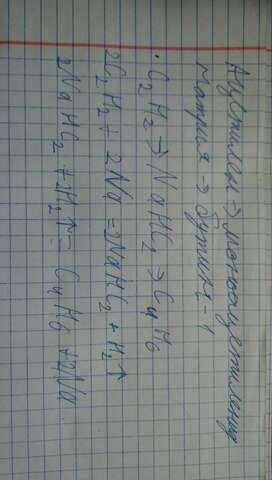 Ацетилен → моноацетиленид
натрия → бутин - 1
C₂H₂ → NaHC₂ → C₄H₆
2C₂H₂ + 2Na = 2NaHC₂ + H₂↑
2NaHC₂ + 2H₂↑ = C₄H₆ + 2Na